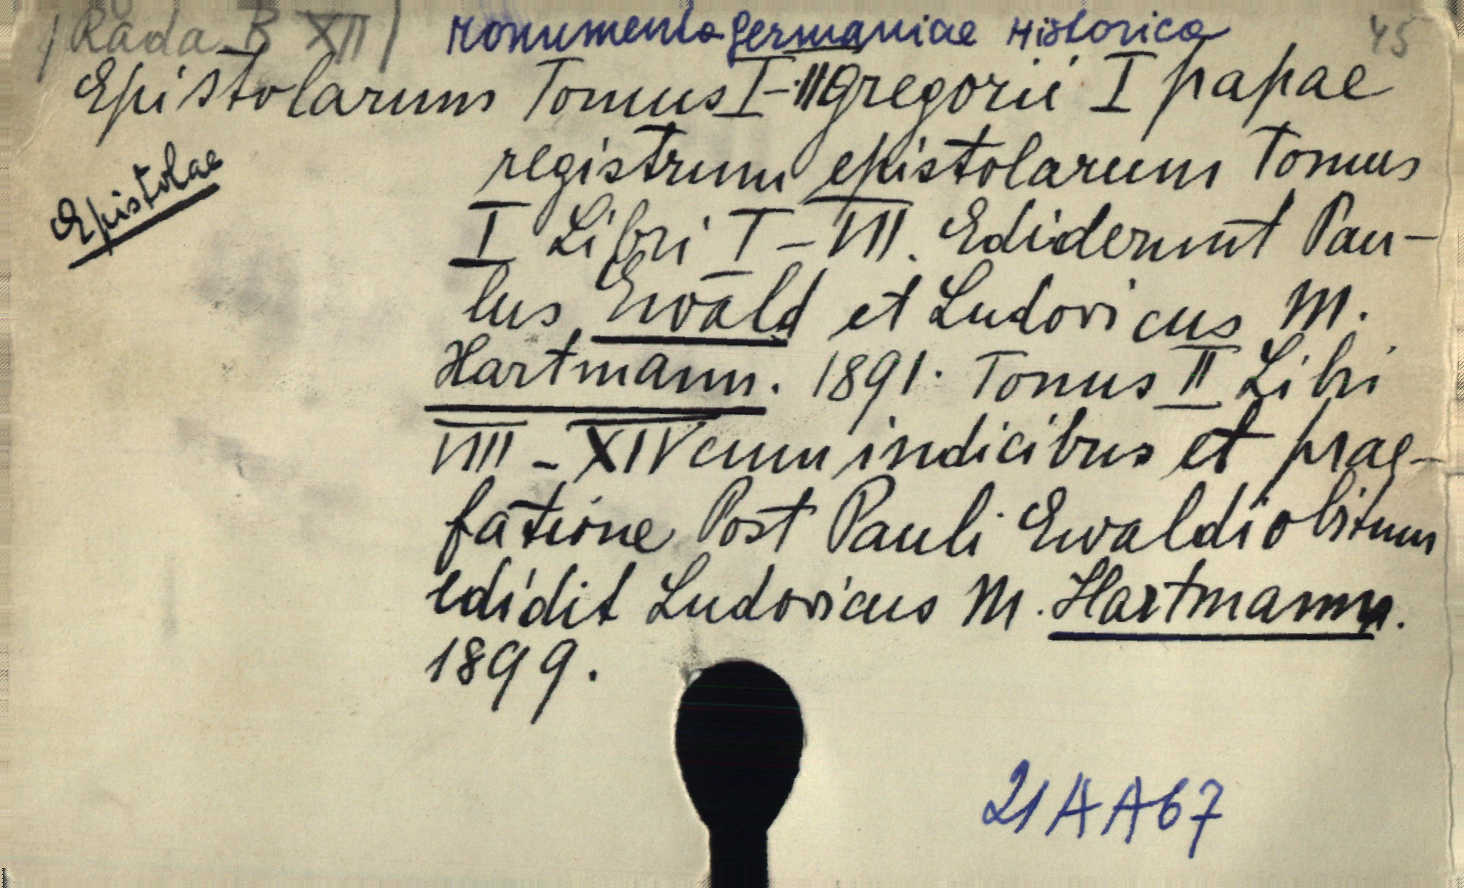 /Rada B XII/ Monumenta Germaniae Historica 45
Epistolarum Tomus I-II Gregorii I papae
Epistolae
registrum epistolarum Tomus
I Libri I-VII. Ediderunt Pau-
lus Ewald et Ludovicus M.
Hartmann. 1891. Tomus II Libri
VIII-XIV cum indicibus et prae-
fatione Post Pauli Ewaldi obitum
edidit Ludovicus M. Hartmann.
1899.
21AA67